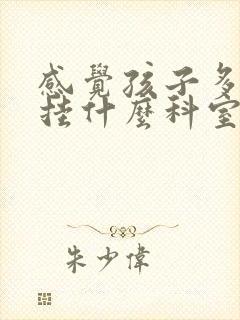 感覺孩子多
挂什麼科室
朱少偉